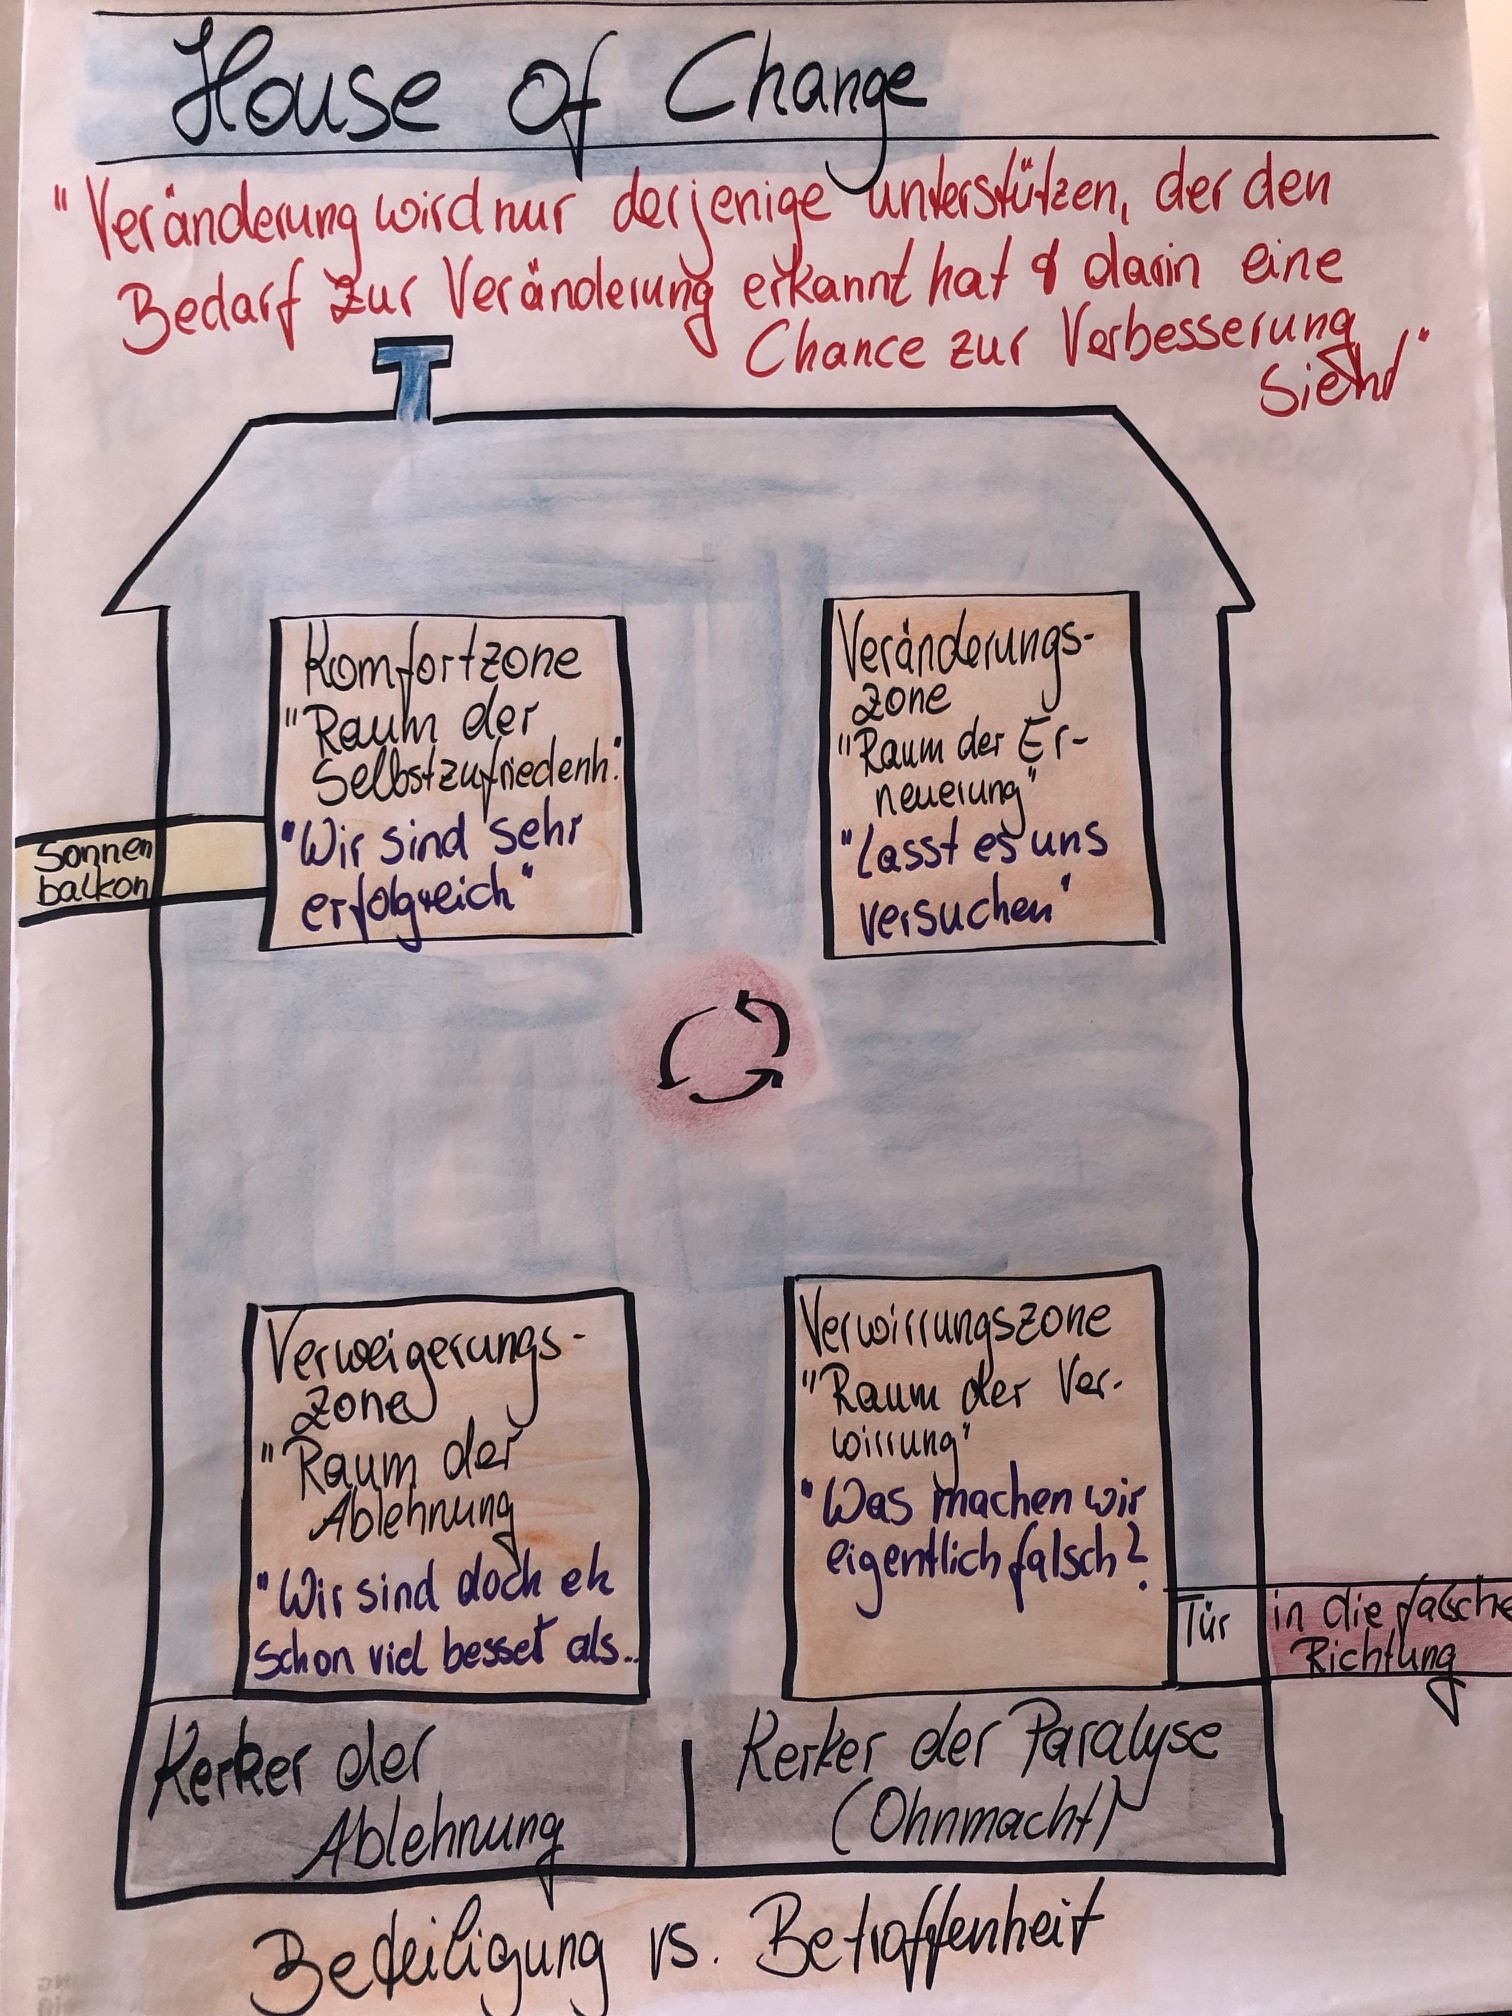 House of Change
"Veränderung wird nur derjenige unterstützen, der den
Bedarf zur Veränderung erkannt hat & darin eine
Chance zur Verbesserung
sieht"
Komfortzone
"Raum der
Selbstzufriedenh."
"Wir sind sehr
erfolgreich"
Sonnen
balkon
Veränderungs-
zone
"Raum der Er-
neuerung"
"Lasst es uns
versuchen"
Verweigerungs-
zone
"Raum der
Ablehnung
"Wir sind doch eh
schon viel besser als..
Verwirrungszone
"Raum der Ver-
wirrung"
"Was machen wir
eigentlich falsch?
Tür in die falsche
Richtung
Kerker der
Ablehnung
Kerker der Paralyse
(Ohnmacht)
Beteiligung vs. Betroffenheit